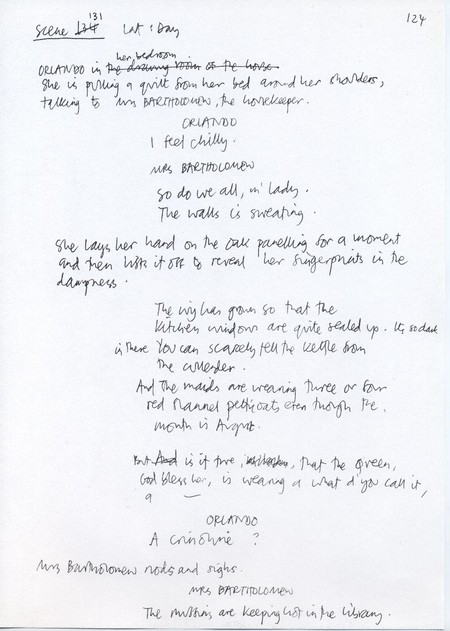 124
131
Scene 134 Int : Day
her bedroom
ORLANDO in the drawing room of the house.
She is pulling a quilt from her bed around her shoulders,
talking to Mrs BARTHOLOMEW, the housekeeper.
ORLANDO
I feel chilly.
MRS BARTHOLOMEW
So do we all, m'lady.
The walls is sweating.
She lays her hand on the oak panelling for a moment
and then lifts it off to reveal her fingerprints in the
dampness.
The ivy has grown so that the
kitchen windows are quite sealed up. It's so dark
in there You can scarcely tell the kettle from
the cullender.
And The maids are wearing three or four
red flannel petticoats even though the
month is August.
But And is it true, that the Queen,
God bless her, is wearing a what d'you call it,
a —
ORLANDO
A crinoline ?
Mrs Bartholomew nods and sighs.
MRS BARTHOLOMEW
The muffins are keeping hot in the Library.